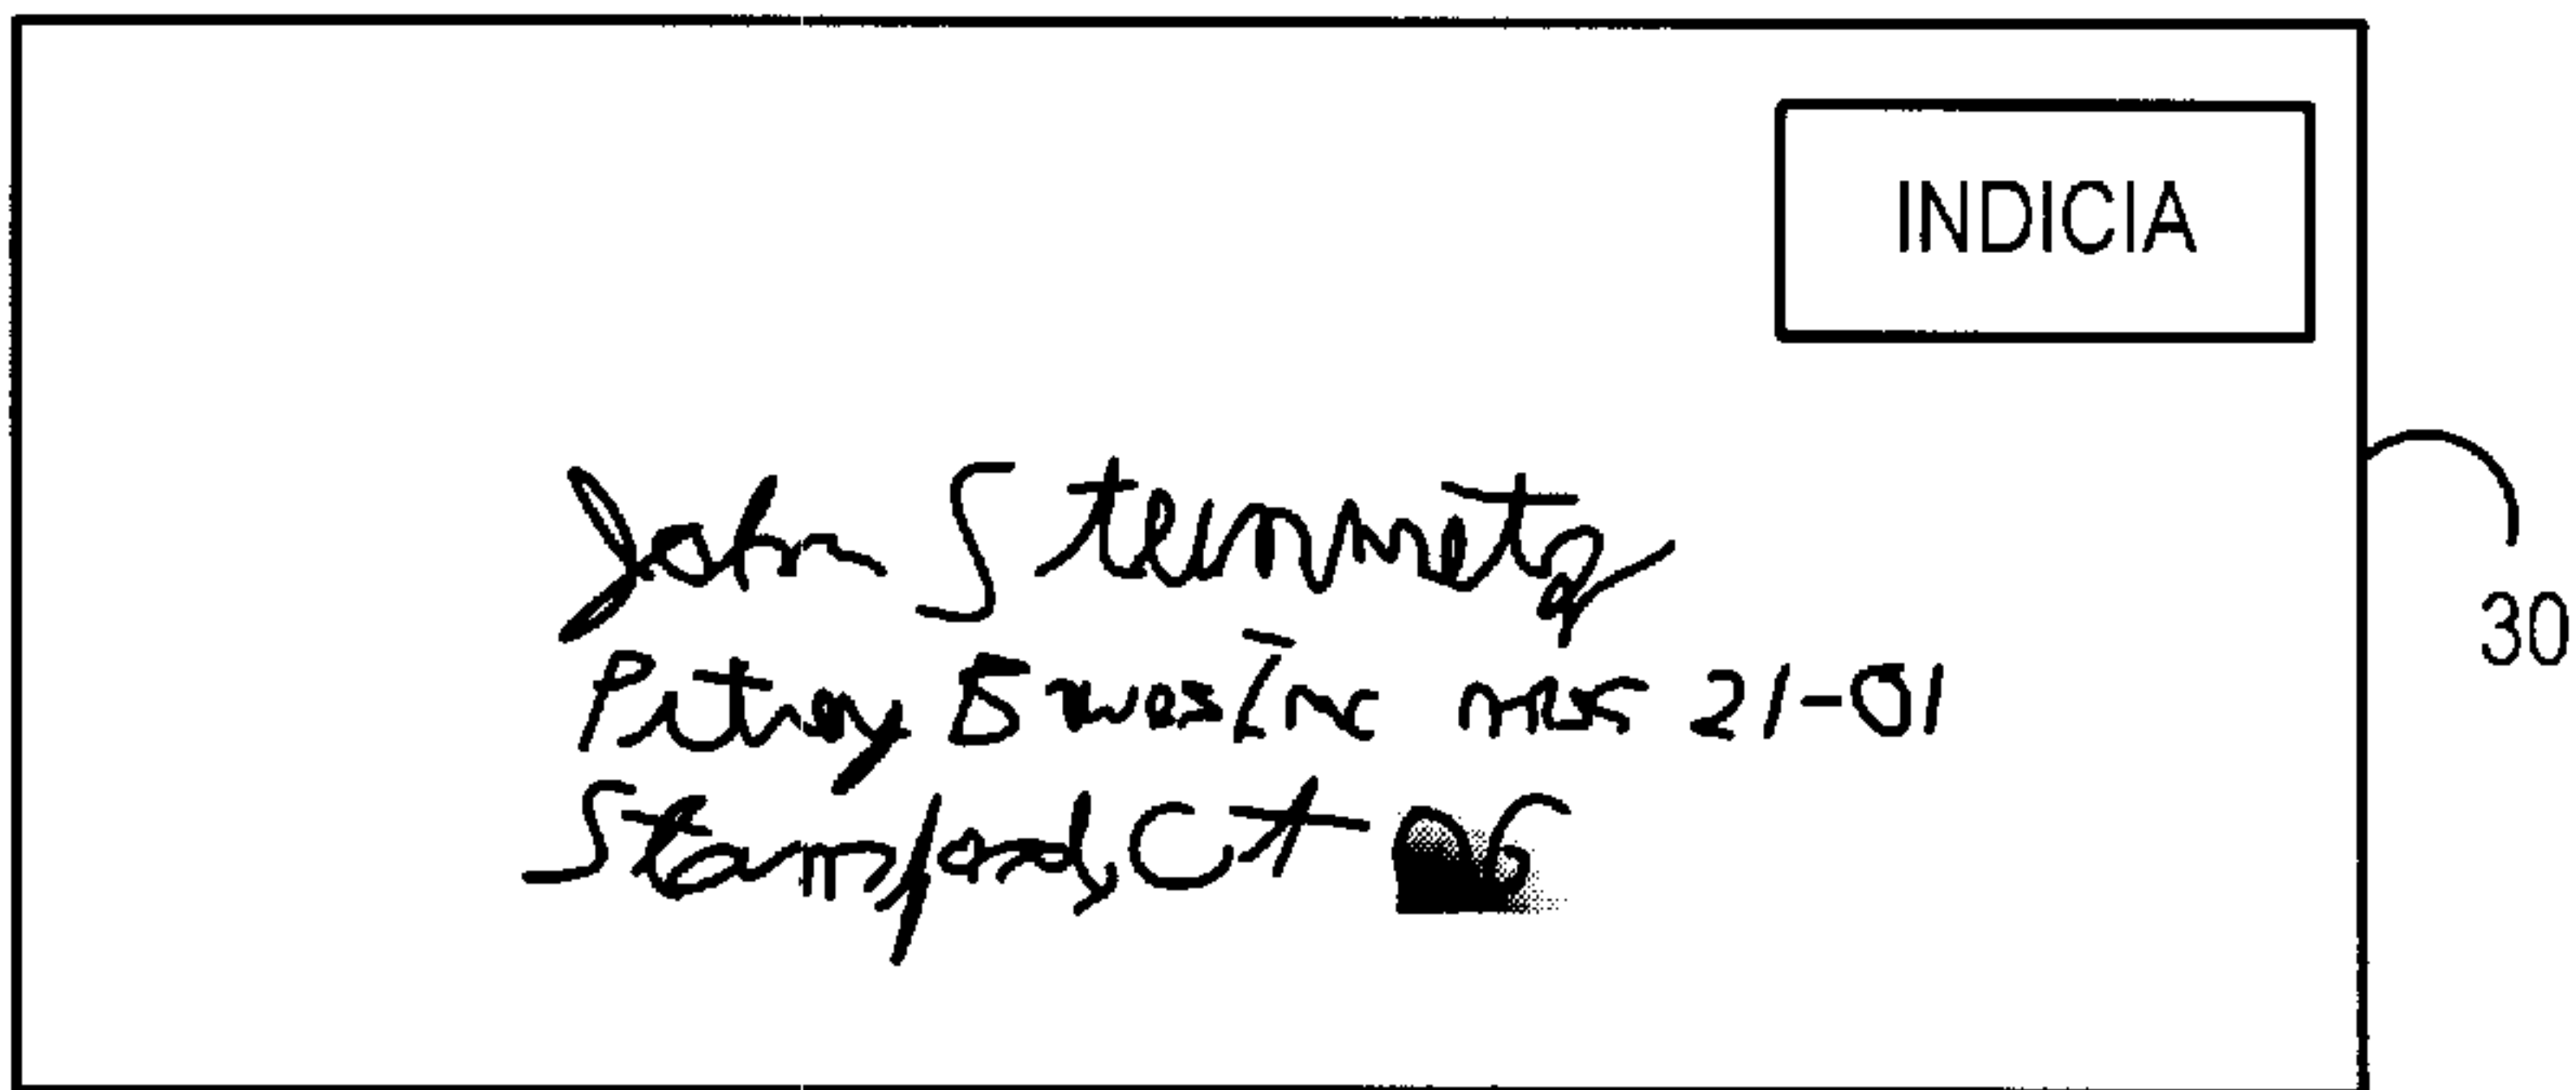 INDICIA
John Steinmetz
Pitney Bowes Inc MSC 21-01
Stamford, Ct 06
30